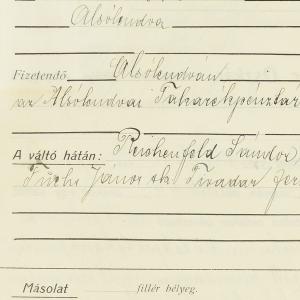 Alsólendva
Fizetendő Alsólendván
az Alsólendvai Takarékpénztár
A váltó hátán: Reichenfeld Sándor
Fuchs János Tivadar
Másolat fillér bélyeg.